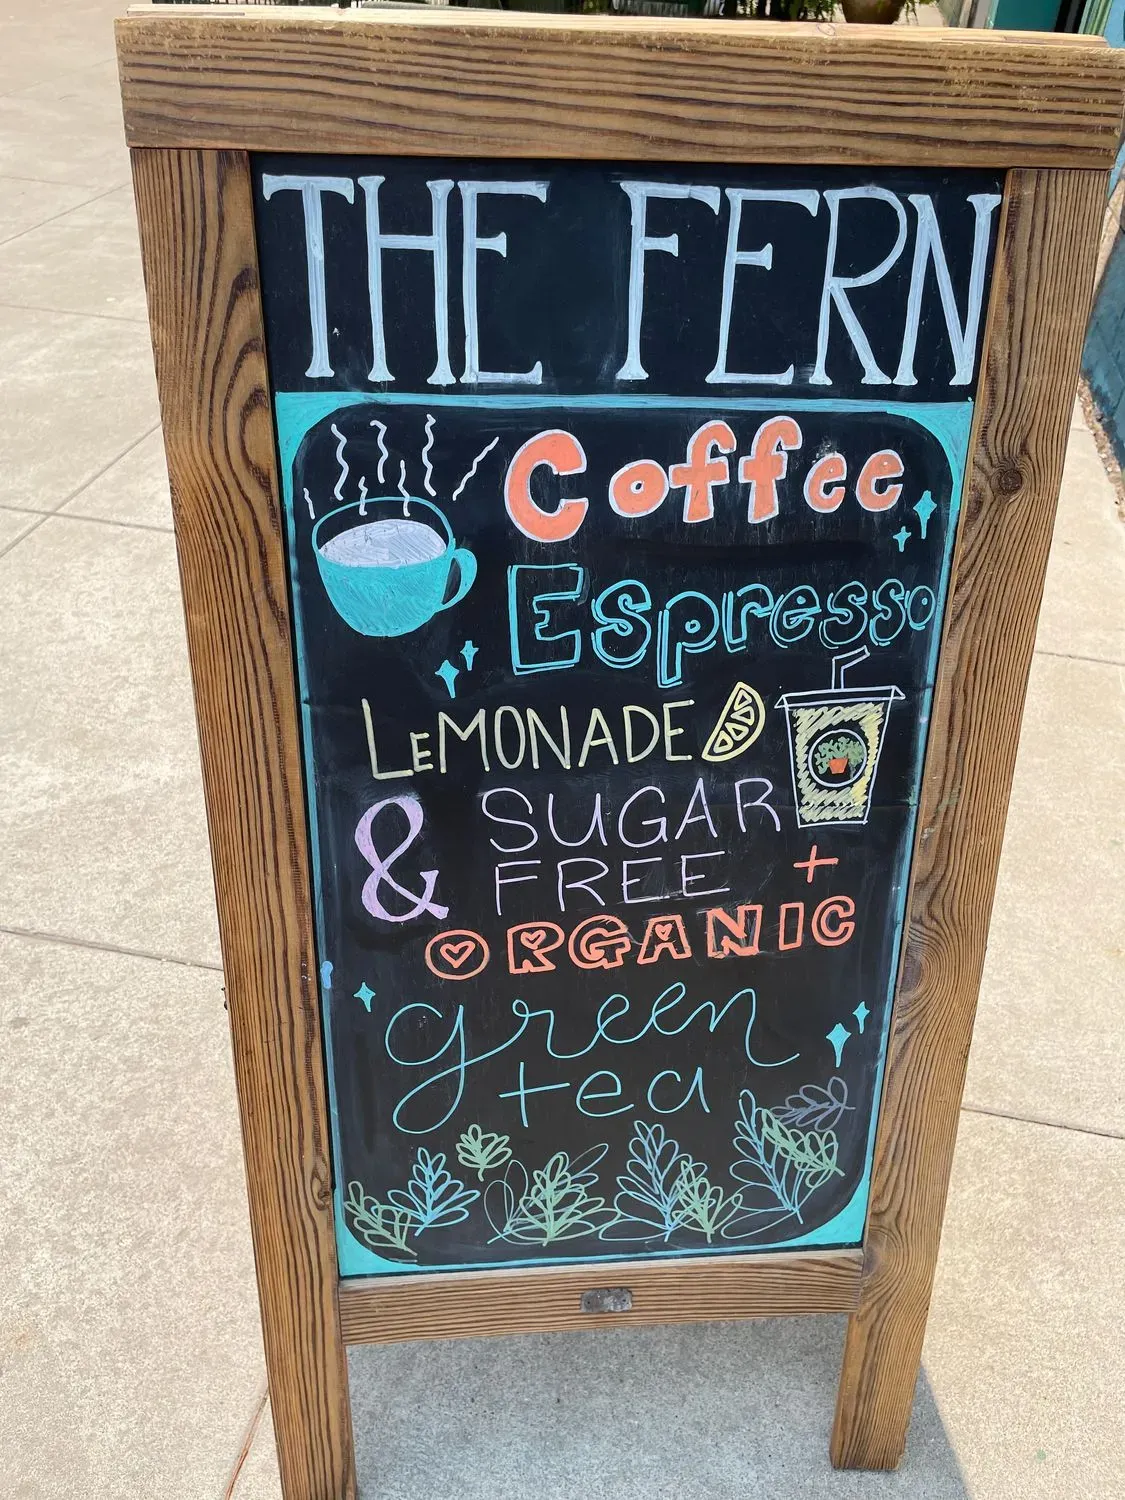 THE FERN
Coffee
Espresso
LEMONADE
& SUGAR
FREE +
ORGANIC
green
tea